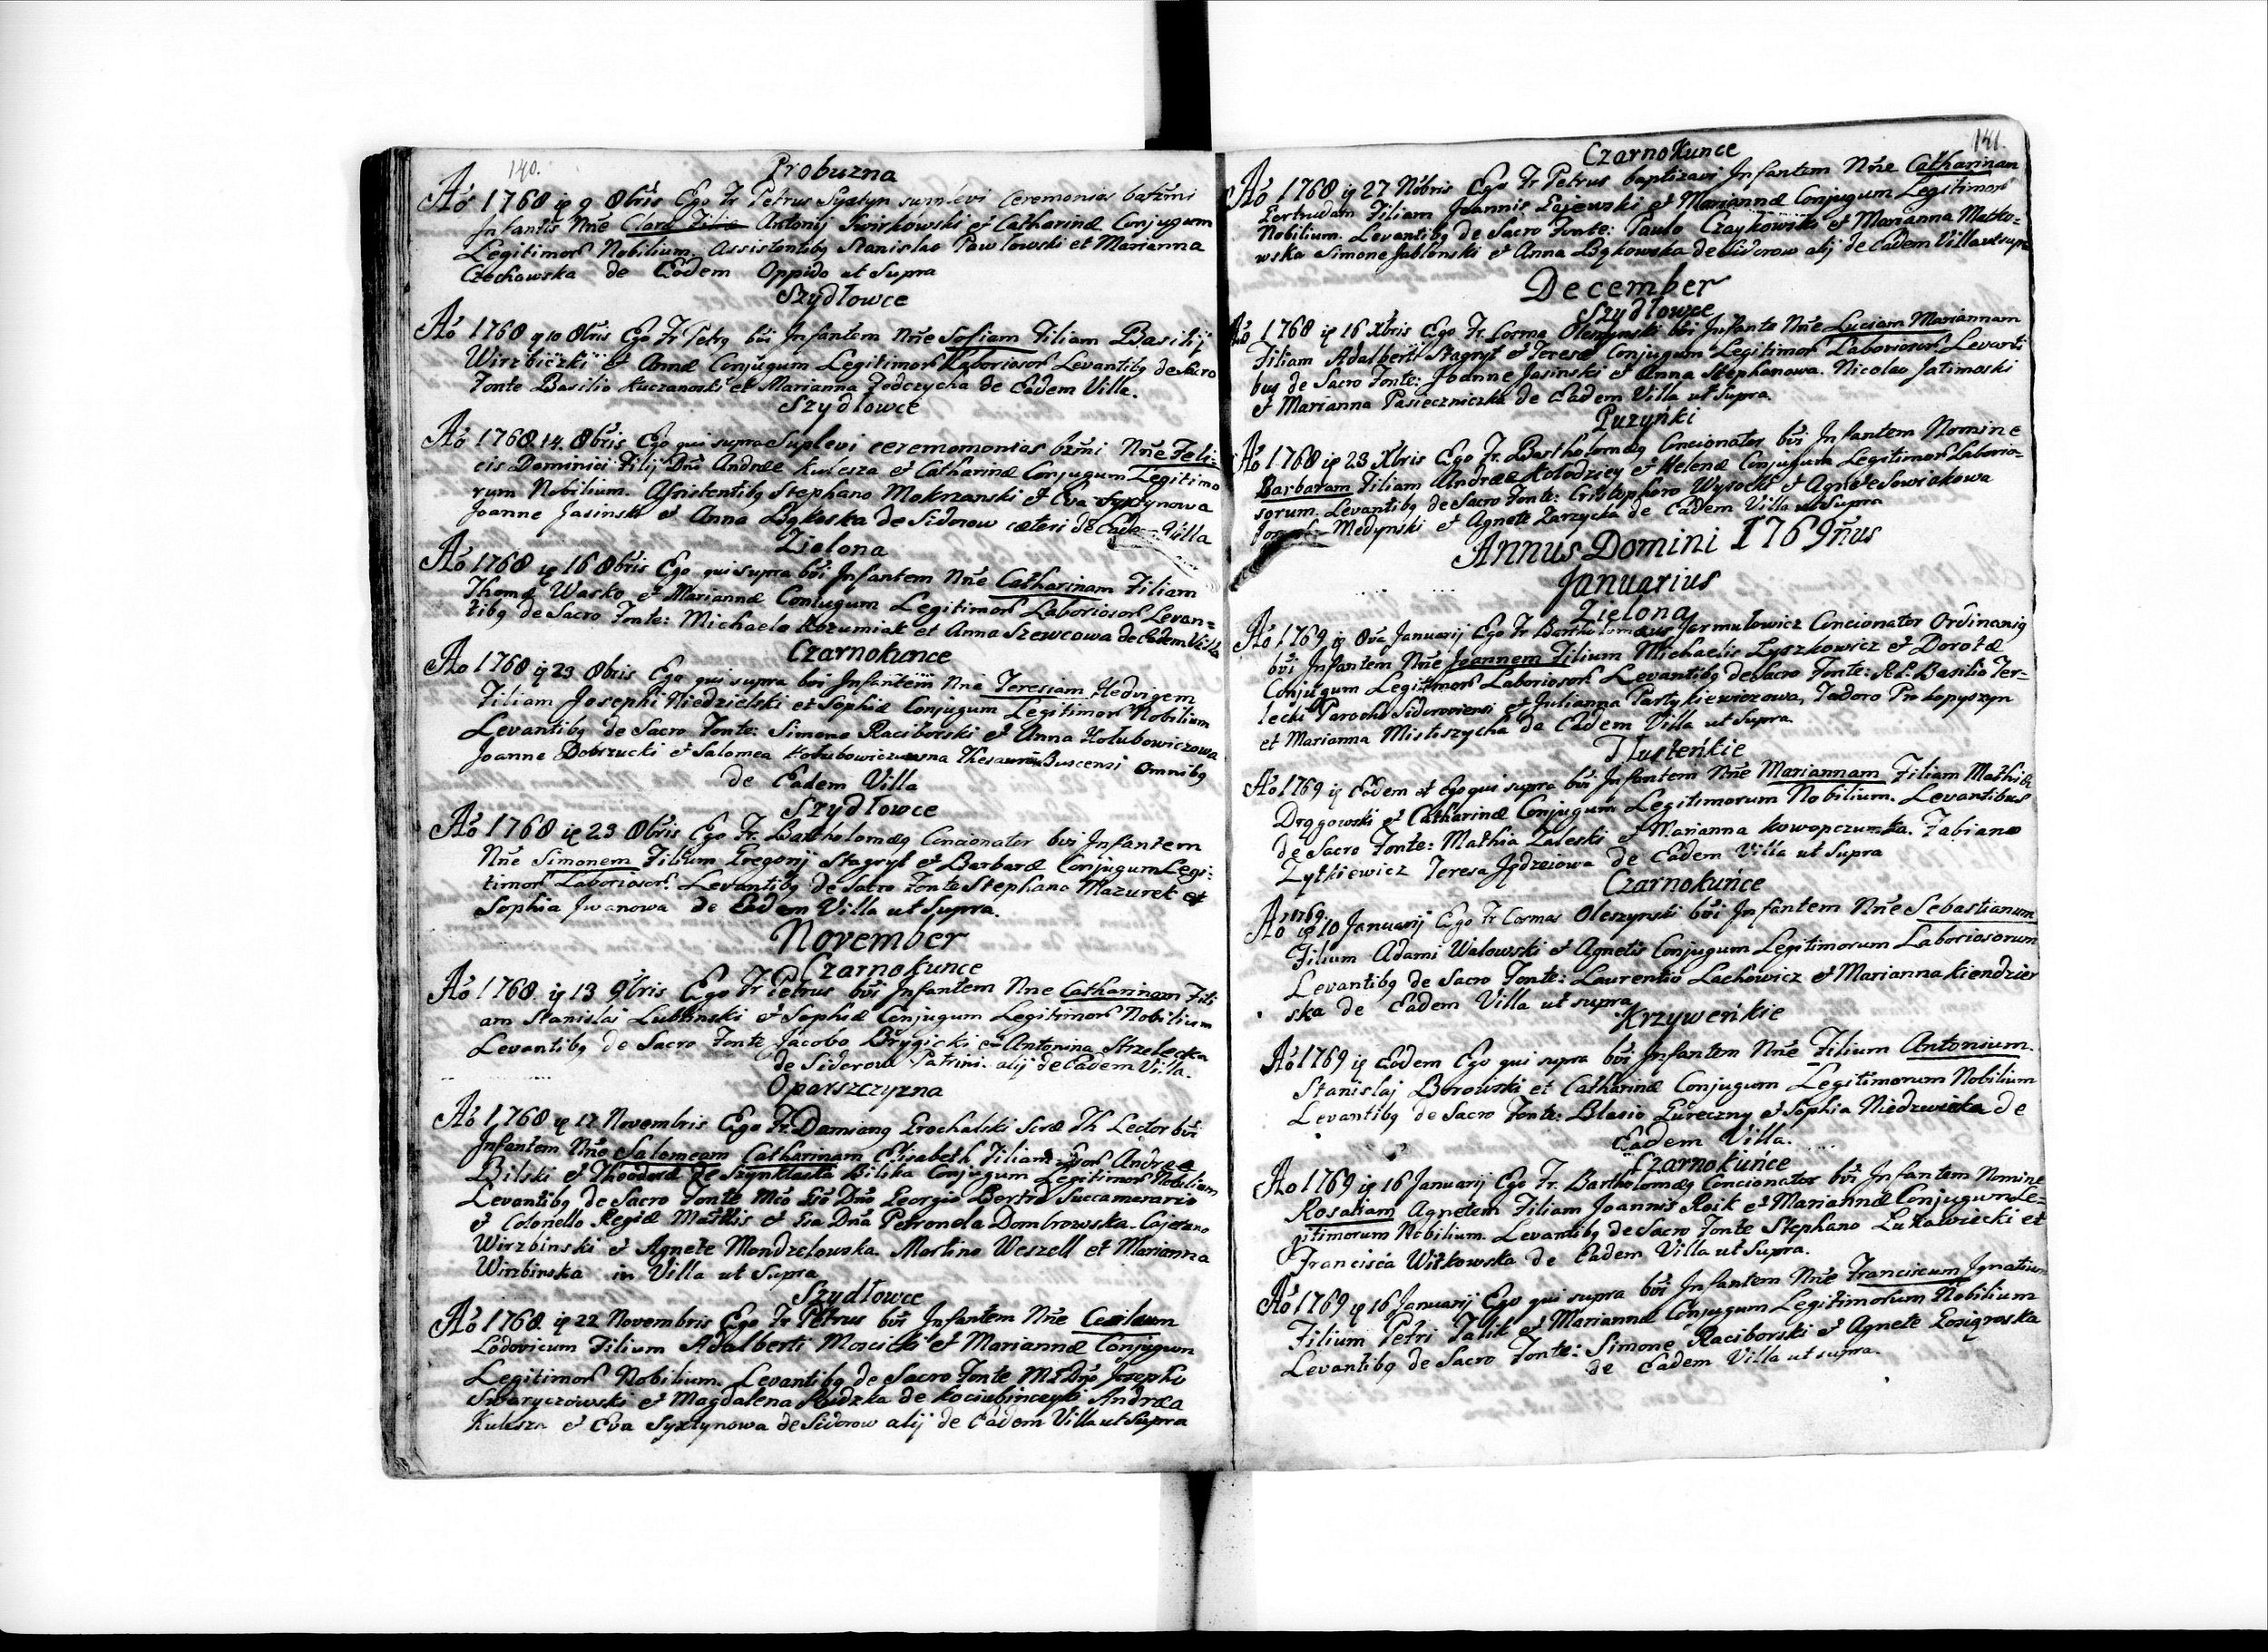 140.
Probuzna
Aō 1768 ip 9 8bris Ego Fr Petrus Syxtyn supplevi Ceremonias baptizmi
Infantis Nñe Clara Filia Antonij Swirkowski et Catharinæ Conjugum
Legitimor Nobilium. Assistentibq Stanislao Pawlowski et Marianna
Czechowska de Eodem Oppido ut Supra
Szydłowce
Aō 1768 10 8bris Ego Fr Petrq bvi Infantem Nñe Sofiam Filiam Basilij
Wirzbiczki et Annæ Conjugum Legitimor Laboriosor Levantibq de Sacro
Fonte Basilio Kuczanoski et Marianna Fedczycha de Eadem Villa.
Szydłowce
Aō 1768 14. 8bris Ego qui supra Suplevi ceremomonias bzmi Nñe Feli-
cis Dominici Filij Dni Andreæ Kulesza et Catharinæ Conjugum Legitimo
rum Nobilium. Assistentibq Stephano Mokrzanski et Eva Syxtynowa
Joanne Jasinski et Anna Bykoska de Sidorow cæteri de Villa
Zielona
Aō 1768 ip 16 8bris Ego qui supra bvi Infantem Nñe Catharinam Filiam
Thomæ Wasko et Mariannæ Conjugum Legitimor Laboriosor Levan-
tibq de Sacro Fonte: Michaele Kozumiak et Anna Szewcowa de Eadem Villa
Czarnokunce
Ao 1768 ip 23 8bris Ego qui supra bvi Infantem Nñe Teresiam Hedvigem
Filiam Josephi Niedzielski et Sophiæ Conjugum Legitimor Nobilium
Levantibq de Sacro Fonte: Simone Raciborski et Anna Hołubowiczowa
Joanne Dobrzucki et Salomea Omnibq
de Eadem Villa
Szydłowce
Aō 1768 ip 23 8bris Ego Fr. Bartholomæq Concionator bvi Infantem
Nñe Simonem Filium Gregorij Stagryt et Barbaræ Conjugum Legi-
timor Laboriosor. Levantibq de Sacro Fonte Stephano Mazurek et
Sophia Jwanowa de Eadem Villa ut Supra.
November
Czarnokunce
Aō 1768. ip 13 9bris Ego Fr Petrus bvi Infantem Nñe Catharinam Fili
am Stanislai Lublinski et Sophiæ Conjugum Legitimor Nobilium
Levantibq de Sacro Fonte Jacobo Brygicki et Antonina Strzelecka
de Sidorow Patrini. alij de Eadem Villa.
Oparszczyzna
Aō 1768 ip 17 Novembris Ego Fr. Damianq Grochalski Scræ Th Lector bvi
Infantem Nñe Salomeam Catharinam Elisabeth Filiam Andreæ
Bilski et Theodoræ de Bilska Conjugum Legitimor Nobilium
Levantibq de Sacro Fonte Georgio Succamerario
et Colonello Regiæ Mattis et Petronela Dombrowska. Cajetano
Wirzbinski et Agnete Mondzelowska. Martino Weszell et Marianna
Wirzbinska in Villa ut Supra
Szydłowce
Aō 1768 ip 22 Novembris Ego Fr Petrus bvi Infantem Nñe
Lodovicum Filium Adalberti Moscicki et Mariannæ Conjugum
Legitimor Nobilium. Levantibq de Sacro Fonte Josepho
Swaryczowski et Magdalena Rudzka de Andrea
Kulesza et Eva Syxtynowa de Sidorow alij de Eadem Villa ut Supra
141.
Czarnokunce
Aō 1768 ip 27 Nōbris Ego Fr Petrus baptizavi Infantem Nñe Catharinam
Gertrudam Filiam Joannis Gajewski et Mariannæ Conjugum Legitimor
Nobilium. Levantibq de Sacro Fonte: Paulo Czaykowski et Marianna Matko-
wska Simone Jabłonski et Anna Bykowska de Sidorow alij de Eadem Villa ut supra
December
Szydłowce
Aō 1768 ip 16 Xbris Ego Fr. Cosma Oleszynski bvi Infante Nñe Luciam Mariannam
Filiam Adalberti Stagryt et Teresæ Conjugum Legitimor Laboriosor Levanti
bus de Sacro Fonte: Joanne Jasinski et Anna Stephanowa. Nicolao Jatimoski
et Marianna Pasieczniczka de Eadem Villa ut Supra.
Puzyńki
Aō 1768 ip 23 Xbris Ego Fr. Bartholomæq Concionator bvi Infantem Nomine
Barbaram Filiam Andreæ Kołodziey et Helenæ Conjugum Legitimor Laborio-
sorum. Levantibq de Sacro Fonte: Cristophoro Wysocki et Agnete Sowiakowa
Medynski et Agnete Zarzycka de Eadem Villa ut Supra
Annus Domini 1769ñus
Januarius
Zielona
Aō 1769 ip 8va Januarij Ego Fr. Bartholomæus Jarmulowicz Concionator Ordinariq
bvi Infantem Nñe Joannem Filium Michaelis Lyszkowicz et Dorotæ
Conjugum Legitimor Laboriosor. Levantibq de Sacro Fonte: Basilio Ter-
lecki Parocho Sidoroviensi et Julianna Partykiewiczowa, Fadoro Prokopyszyn
et Marianna Mistiszycha de Eadem Villa ut Supra.
Tłusteńkie
Aō 1769 ip Eadem et Ego qui supra bvi Infantem Nñe Mariannam Filiam Mathiæ
Drągowski et Catharinæ Conjugum Legitimorum Nobilium. Levantibus
de Sacro Fonte: Mathia Zaleski et Marianna Kowopczumka. Fabiano
Zytkiewicz Teresa Jędzeiowa de Eadem Villa ut Supra
Czarnokuńce
Aō 1769 ip 10 Januarij Ego Fr Cosmas Oleszynski bvi Infantem Nñe Sebastianum
Filium Adami Walowski et Agnetis Conjugum Legitimorum Laboriosorum
Levantibq de Sacro Fonte: Laurentio Lachowicz et Marianna Kiendzier
ska de Eadem Villa ut supra
Krzyweńkie
Aō 1769 ip Eadem Ego qui supra bvi Infantem Nñe Filium Antonium.
Stanislaj Borowski et Catharinæ Conjugum Legitimorum Nobilium
Levantibq de Sacro Fonte: Blasio Gureczny et Sophia Niedzwicka de
Eadem Villa.
Czarnokuńce
Aō 1769 ip 16 Januarij Ego Fr. Bartholomæq Concionator bvi Infantem Nomine
Rosaliam Agnetem Filiam Joannis Roik et Mariannæ Conjugum Le-
gitimorum Nobilium. Levantibq de Sacro Fonte Stephano Lukawiecki et
Francisca Witkowska de Eadem Villa ut Supra.
Aō 1769 ip 16 Januarij Ego qui supra bvi Infantem Nñe Franciscum Ignatium
Filium Petri Talik et Mariannæ Conjugum Legitimorum Nobilium
Levantibq de Sacro Fonte: Simone Raciborski et Agnete
de Eadem Villa ut supra.